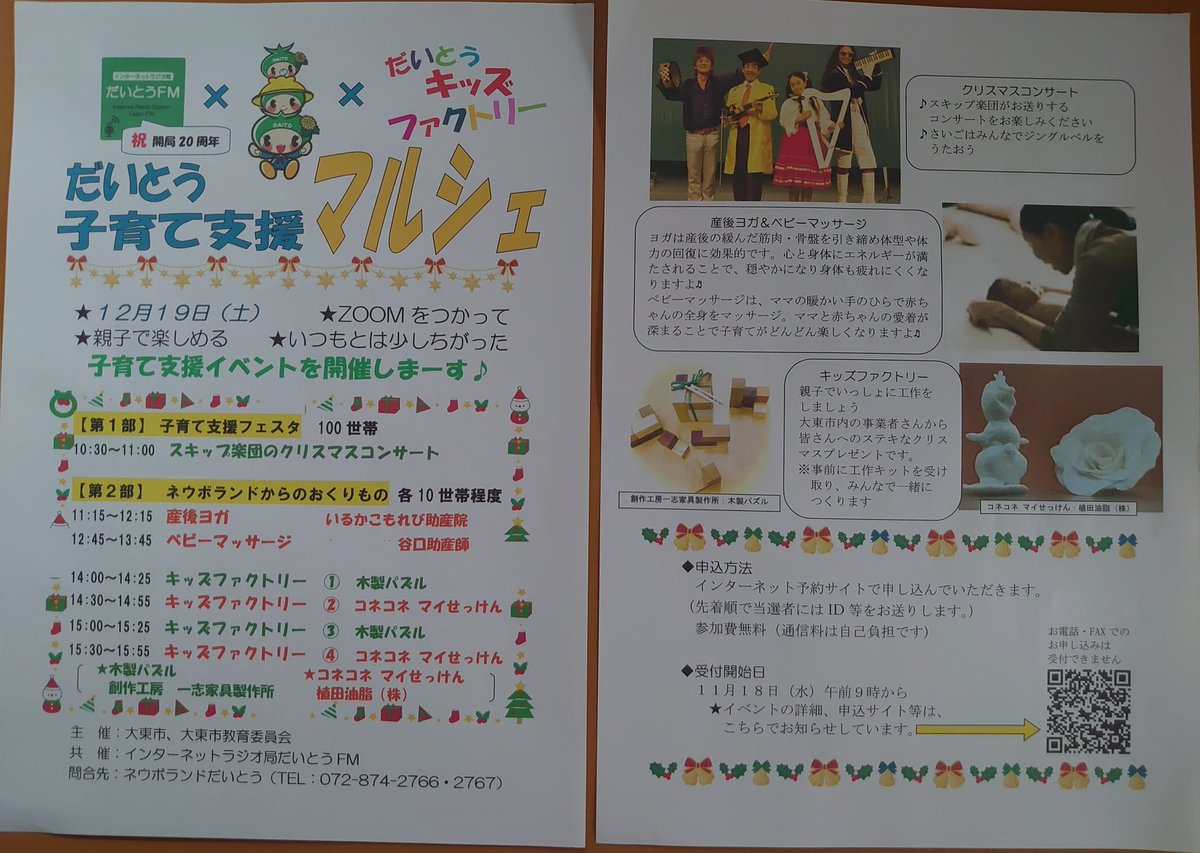 インターネットラジオ局
だいとうFM
Internet Radio Station
Daito-FM
祝 開局20周年
×
DAITO
DAITO
×
だいとう
キッズ
ファクトリー
だいとう
子育て支援
マルシェ
★12月19日(土) ★ZOOMをつかって
★親子で楽しめる ★いつもとは少しちがった
子育て支援イベントを開催しまーす♪
【第1部】 子育て支援フェスタ 100世帯
10:30~11:00 スキップ楽団のクリスマスコンサート
【第2部】 ネウボランドからのおくりもの 各10世帯程度
11:15~12:15 産後ヨガ いるかこもれび助産院
12:45~13:45 ベビーマッサージ 谷口助産師
14:00~14:25 キッズファクトリー ① 木製パズル
14:30~14:55 キッズファクトリー ② コネコネ マイせっけん
15:00~15:25 キッズファクトリー ③ 木製パズル
15:30~15:55 キッズファクトリー ④ コネコネ マイせっけん
★木製パズル ★コネコネ マイせっけん
創作工房 一志家具製作所 植田油脂(株)
主 催:大東市、大東市教育委員会
共 催:インターネットラジオ局だいとうFM
問合先:ネウボランドだいとう(TEL:072-874-2766・2767)
クリスマスコンサート
♪スキップ楽団がお送りする
コンサートをお楽しみください
♪さいごはみんなでジングルベルを
うたおう
産後ヨガ&ベビーマッサージ
ヨガは産後の緩んだ筋肉・骨盤を引き締め体型や体
力の回復に効果的です。心と身体にエネルギーが満
たされることで、穏やかになり身体も疲れにくくな
りますよ♬
ベビーマッサージは、ママの暖かい手のひらで赤ち
ゃんの全身をマッサージ。ママと赤ちゃんの愛着が
深まることで子育てがどんどん楽しくなりますよ♬
キッズファクトリー
親子でいっしょに工作を
しましょう
大東市内の事業者さんから
皆さんへのステキなクリス
マスプレゼントです。
※事前に工作キットを受け
取り、みんなで一緒に
つくります
創作工房一志家具製作所:木製パズル
コネコネ マイせっけん:植田油脂(株)
◆申込方法
インターネット予約サイトで申し込んでいただきます。
(先着順で当選者にはID等をお送りします。)
参加費無料(通信料は自己負担です)
お電話・FAXでの
お申し込みは
受付できません
◆受付開始日
11月18日(水)午前9時から
★イベントの詳細、申込サイト等は、
こちらでお知らせしています。